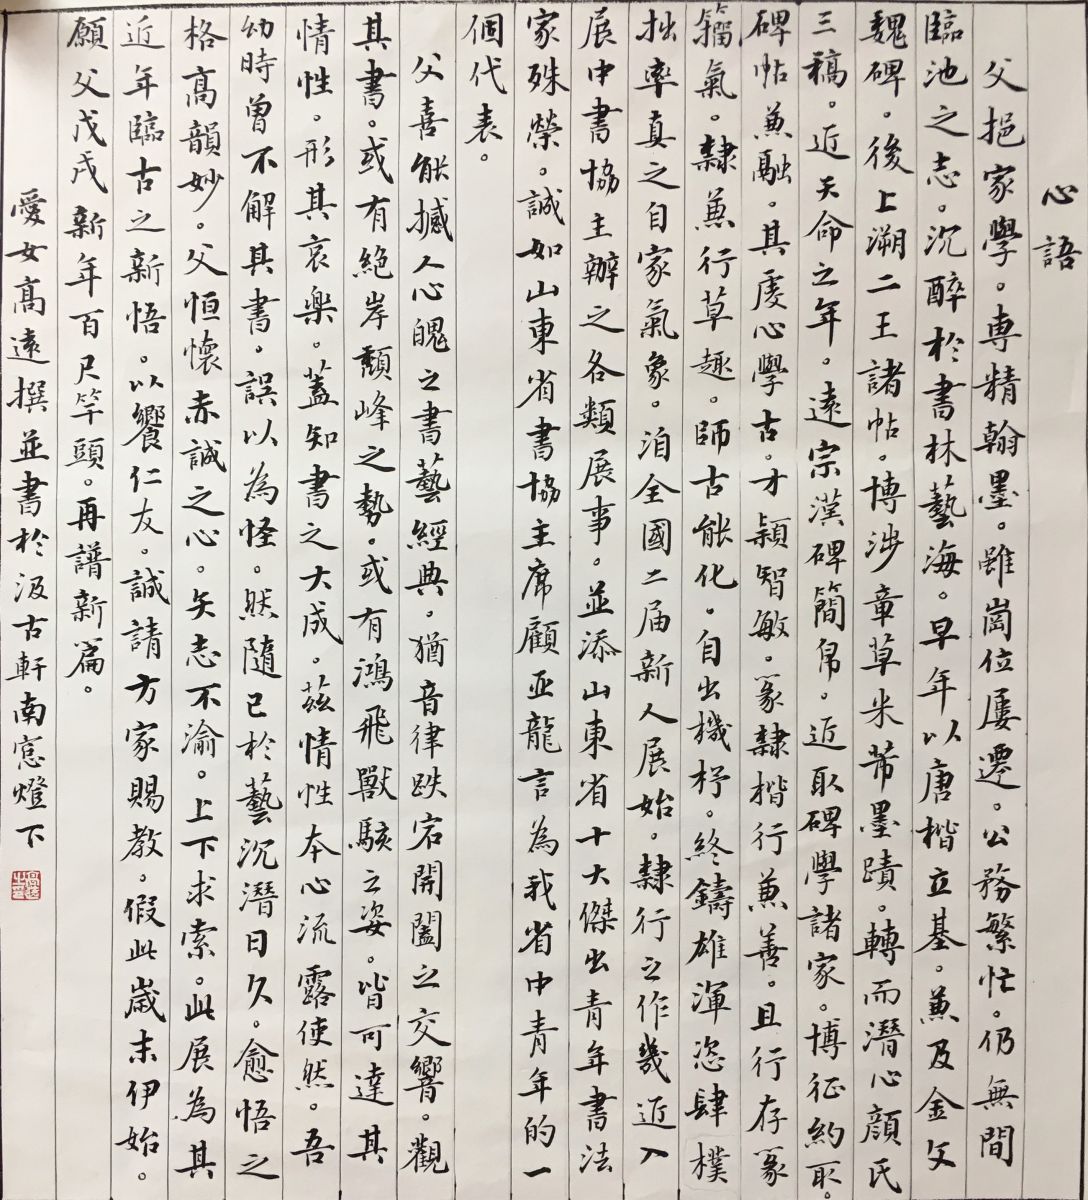 心語
父挹家學。専精翰墨。雖崗位屢遷。公務繁忙。仍無間
臨池之志。沉醉於書林藝海。早年以唐楷立基。兼及金文
魏碑。後上溯二王諸帖。博涉章草米芾墨蹟。轉而潛心顔氏
三稿。近天命之年。遠宗漢碑簡帛。近取碑學諸家。博征約取。
碑帖兼融。其虔心學古。才穎智敏。篆隸楷行兼善。且行存篆
籀氣。隸兼行草趣。師古能化。自出機杼。終鑄雄渾恣肆樸
拙率真之自家氣象。洎全國二届新人展始。隸行之作幾近入
展中書協主辦之各類展事。並添山東省十大傑出青年書法
家殊榮。誠如山東省書協主席顧亚龍言為我省中青年的一
個代表。
父喜能撼人心魄之書藝經典。猶音律跌宕開闔之交響。觀
其書。或有絶岸頽峰之勢。或有鴻飛獸駭之姿。皆可達其
情性。形其哀樂。蓋知書之大成。茲情性本心流露使然。吾
幼時曽不解其書。誤以為怪。然随已於藝沉潛日久。愈悟之
格高韻妙。父恒懷赤誠之心。矢志不渝。上下求索。此展為其
近年臨古之新悟。以饗仁友。誠請方家賜教。假此歲末伊始。
願父戊戌新年百尺竿頭。再譜新篇。
愛女高遠撰並書於汲古軒南窓燈下